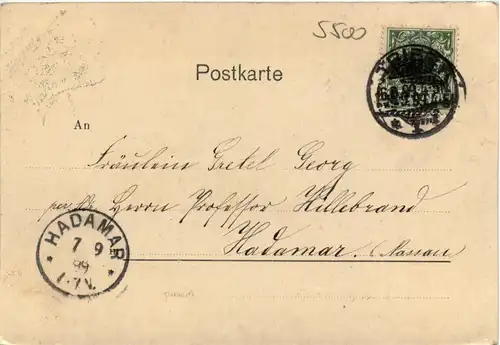 5500
Postkarte
An
Fräulein Gretel Georg
per Adr. Herrn Professor Hillebrand
Hadamar. (Nassau)
HADAMAR
7 9
99
1-7V.